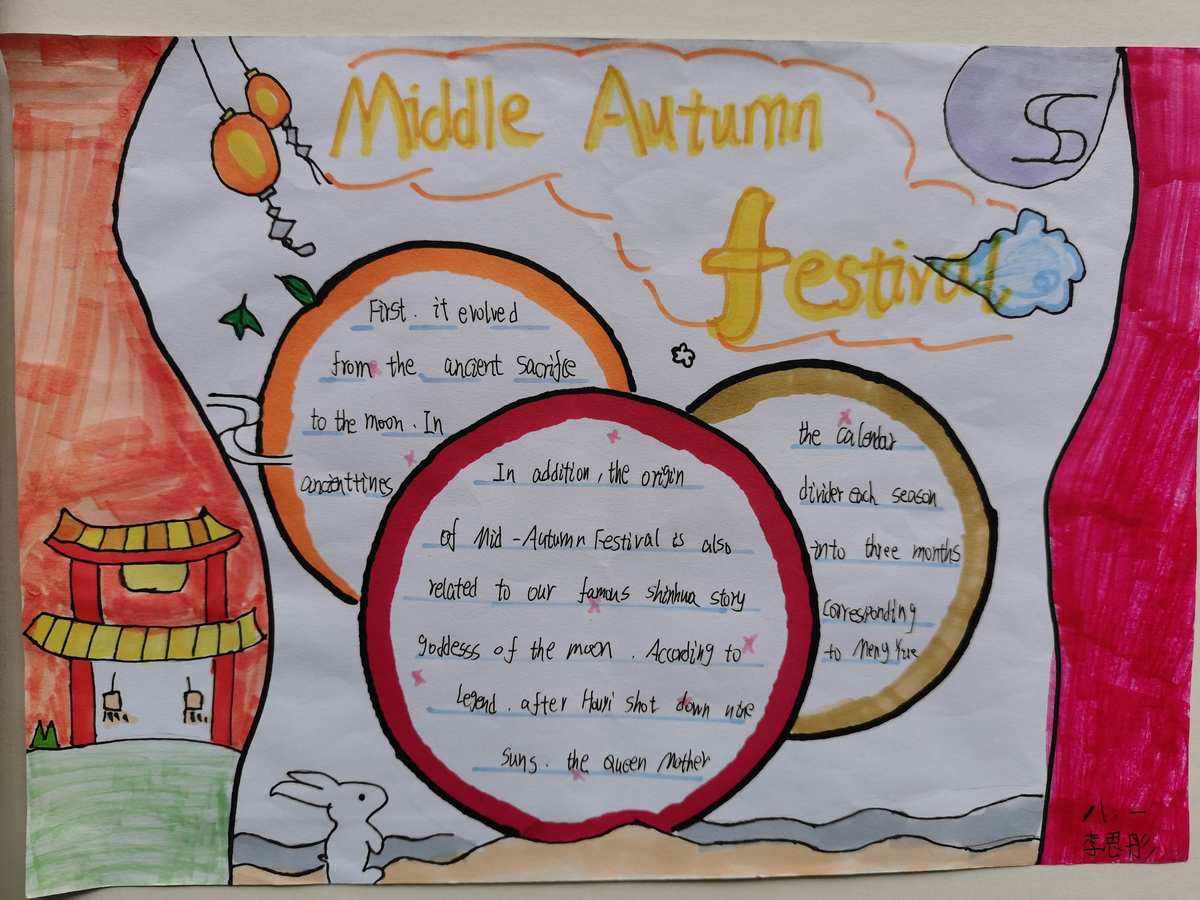 Middle Autumn
festival
First. it evolved
from the ancient sacrifle
to the moon. In
ancienttines
In addition, the origin
of Mid-Autumn Festival is also
related to our famous shinhua story
goddesss of the moon. According to
legend. after Houri shot down nine
suns. the queen Mother
the calendar
divider each season
into three months
corresponding
to Meng
八.一
李思彤